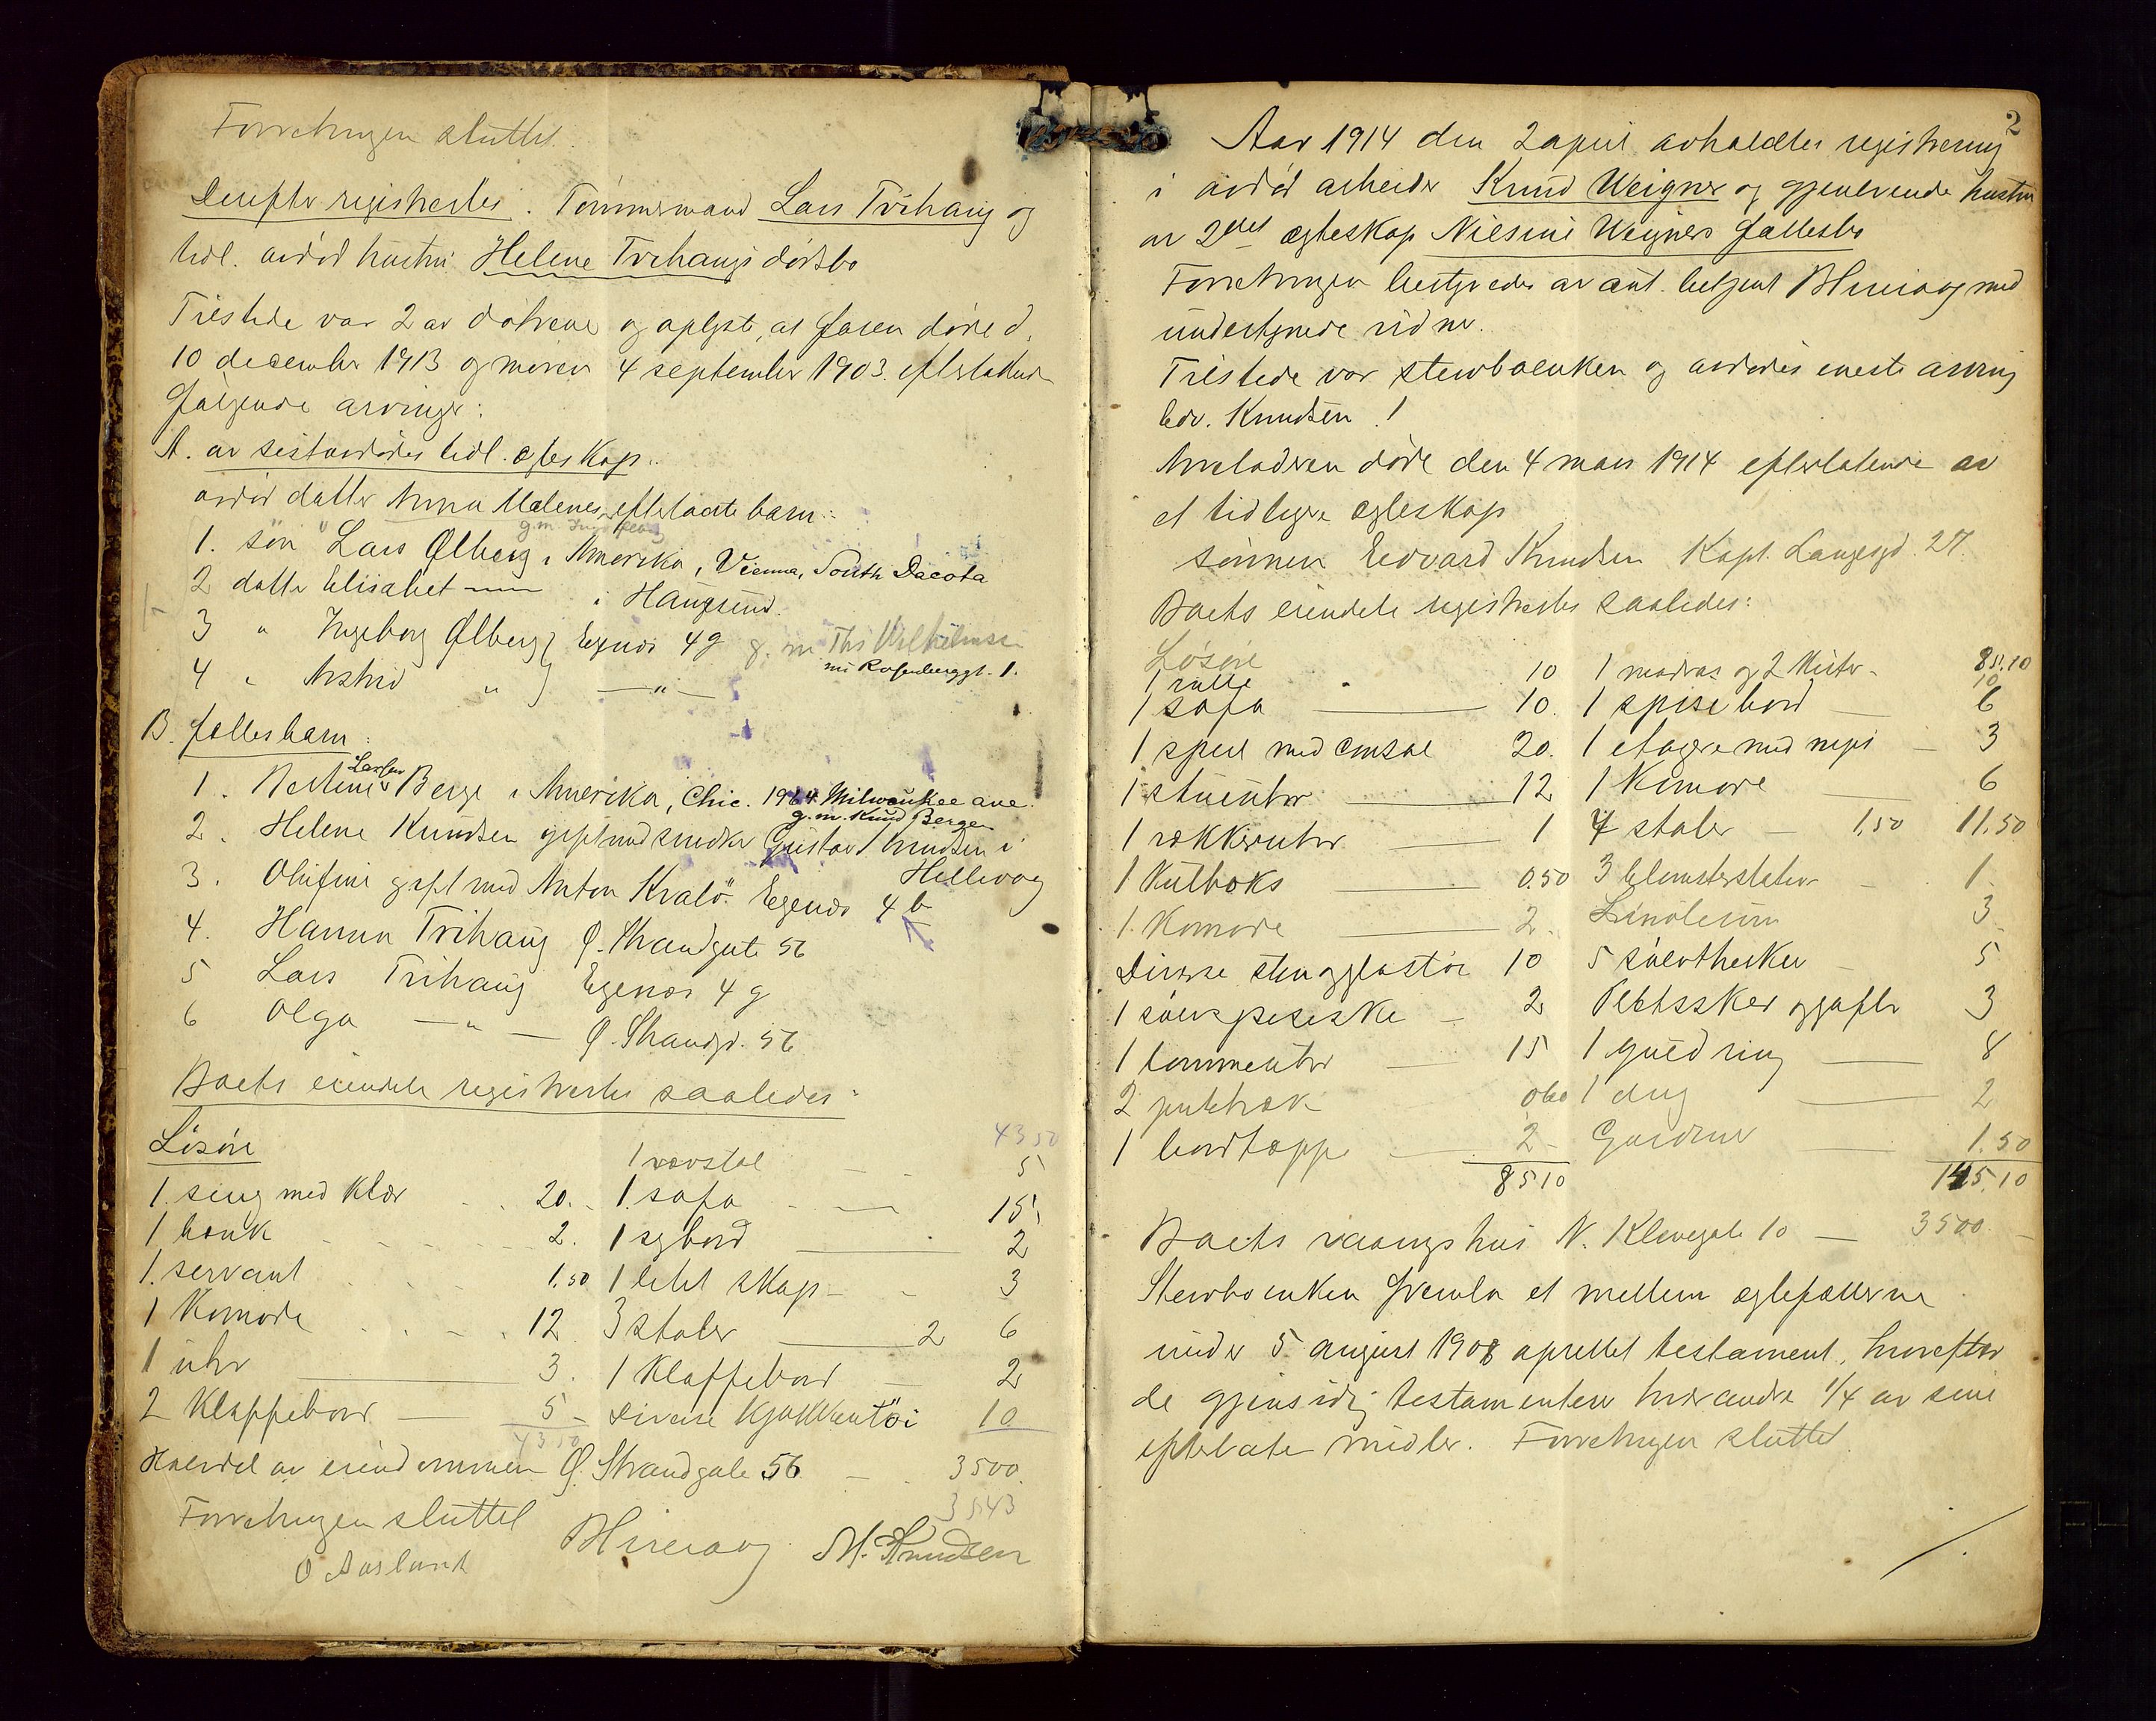 Forretningen sluttet.
Derefter registrertes. Tømmermand Lars Tvihaug og
tidl. avdød hustru Helene Tvihaugs dødsbo
Tilstede var 2 av døtrene og oplyste, at faren døde d.
10 december 1913 og moren 4 september 1903. efterlatende
følgende arvinger:
A. av sistavdødes tidl. egteskap.
avdød datter Anna Malenes efterlatte barn:
1. søn Lars Ølberg i Amerika, Vienna, South Dacota
2 datter Elisabet —"— i Haugesund.
3 " Ingeborg Ølberg Egenes 4 g g. m Ths Vilhelmsen
nu Rosenberggt. 1.
4 " Astrid " —"—
B. fellesbarn:
1. Bertine Larsen Berge i Amerika, Chic. 1964 Milwaukee ave.
g.m. Knud Bergen
2. Helene Knudsen gift med snedker Gustav Knudsen i
Hillevaag
3. Olufine gift med Anton Kvalø. Egenes 4 b
4. Hanna Tvihaug Ø. Strandgate 56
5 Lars Tvihaug Egenes 4 g
6 Olga —"— Ø. Strandgt. 56
Boets eiendele registrertes saaledes:
Løsøre
43 50
1 vævstol - 5
1. seng med klær 20. 1. sofa - 15
1 benk 2. 1 sybord 2
1. servant 1.50 1 litet skap - 3
1 Komode 12 3 stoler 2 6
1 uhr 3. 1 Klaffebord 2
2 Klappebord 5 - Diverse Kjøkkentøi 10
43 50
Halvdel av eiendommen Ø. Strandgate 56 3500.
3543
Forretningen sluttet
O Aasland Hinnaag M. Knudsen
2
Aar 1914 den 2 april avholdtes registrering
i avdød arbeider Knud Weigner og gjenlevende hustru
av 2det egteskap Nilsine Weigners fællesbo
Forretningen bestyredes av aut. betjent med
undertegnede vidner.
Tilstede var sterboenken og avdødes eneste arving
Edv. Knudsen !
Arveladeren døde den 4 mars 1914 efterlatende av
et tidligere egteskap
sønnen Edvard Knudsen Kapt. Langesgd. 27.
Boets eiendele registrertes saaledes:
Løsøre
1 rulle 10 1 madras og 2 85.10
10
1 sofa 10. 1 spisebord 6
1 speil med consol 20. 1 etagere med nips - 3
1 stueuhr 12 1 Komode 6
1 vækkeruhr 1 7 stoler - 1,50 11.50
1 Kulboks 0.50 3 blomsterstativ - 1
1. Komode 2. Linoleum 3
Diverse sten og glastøi 10 5 sølvtheskeer 5
1 sølvspiseske - 2 Pletskeer og gafler 3
1 lommeuhr 15 1 guldring 8
2 putetræk 0 60 1 dug 2
1 bordtæppe 2 - Gardiner 1.50
85 10 145.10
Boets vaaningshus N. Klevegate 10 — 3500. -
Sterboenken fremla et mellem egtefællerne
under 5 august 1908 oprettet testament, hvorefter
de gjensidig testamenterer hverandre 1/4 av sine
efterlatte midler. Forretningen sluttet.